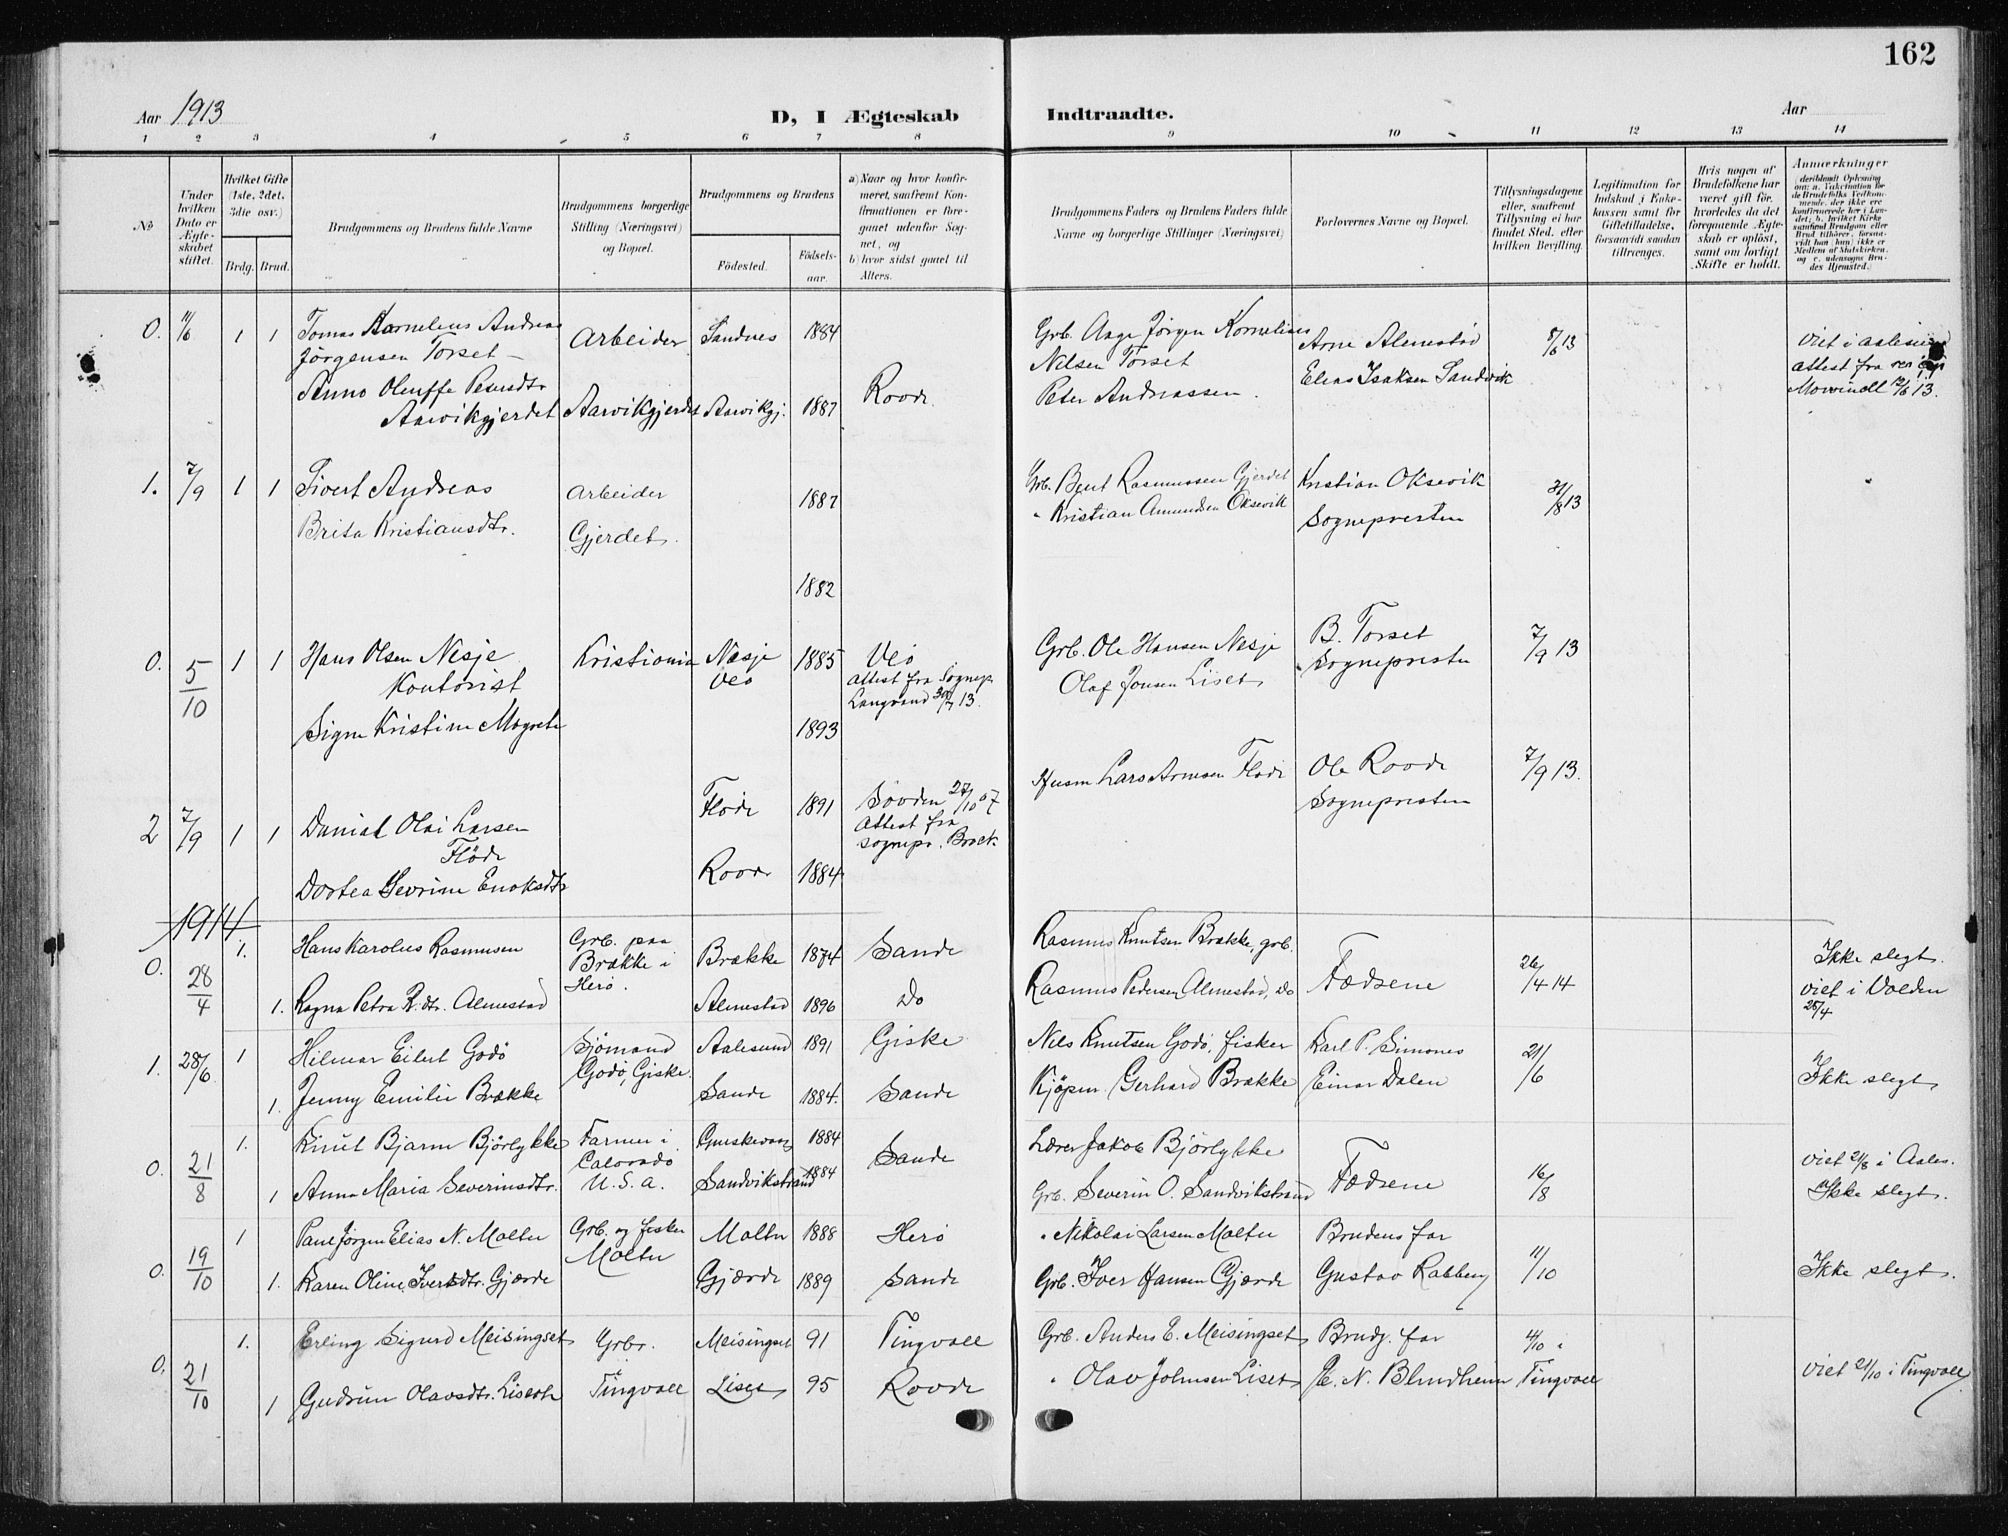 162
Aar 1913
D, I Ægteskab Indtraadte.
Aar
1 2 3 4 5 6 7 8 9 10 11 12 13 14
No.
Under hvilken Dato er Ægteskabet stiftet.
Hvilket Gifte (1ste, 2det, 3die osv.)
Brdg. Brud.
Brudgommens og Brudens fulde Navne
Brudgommens borgerlige Stilling (Næringsvei) og Bopæl.
Brudgommens og Brudens
Fødested.
Fødselsaar.
a) Naar og hvor konfirmeret, saafremt Konfirmationen er foregaaet udenfor Sognet, og
b) hvor sidst gaaet til Alters.
Brudgommens Faders og Brudens Faders fulde Navne og borgerlige Stillinger (Næringsvei)
Forlovernes Navne og Bopæl.
Tillysningsdagene eller, saafremt Tillysning ei har fundet Sted, efter hvilken Bevilling.
Legitimation for Indskud i Enkekassen samt for Giftetilladelse, forsaavidt saadan tiltrænges.
Hvis nogen af Brudefolkene har været gift før, hvorledes da det foregaaende Ægteskab er opløst, samt om lovligt Skifte er holdt.
Anmærkninger
0. 11/6 1 1 Tomas Kornelius Andreas Arbeider Sandnes 1884
Jörgensen Torset
Anno Oluffe Petersdtr Roode
Aarvikgjerdet Aarvikgjerdet Aarvikgj. 1887
Grb. Aage Jörgen Kornelius Arne Almestad 8/6 13 Viet i Aalesund
Nilsen Torset Elias Isaksen Sandvik attest fra
Peter Andreassen. 12/6 13.
1. 7/9 1 1 Sivert Andreas Arbeider 1887
Brita Kristiansdtr. Gjerdet.
1882
Grb. Bent Rasmussen Gjerdet Kristian Oksevik 31/8 13
" Kristian Amundsen Oksevik Sognepresten
0. 5/10 1 1 Hans Olsen Nesje Kristiania Næsje 1885 Veö
Kontorist Veö attest fra Sognep.
Langvand 30/7 13.
Signe Kristine Magrete 1893
Grb. Ole Hansen Nesje B. Torset 7/9 13
Olaf Jonsen Liset Sognepresten
2 7/9 1 1 Daniel Olai Larsen Flöde 1891 Sövden 27/10 07
Flöde Attest fra
sognepr. Brock
Dortea Sevrine Enoksdtr Roode 1884
Husm Lars Arnesen Flöde Ole Roode 7/9 13.
Sognepresten
1914
0. 28/4 1. Hans Karolus Rasmusen Grb. paa Brække i Herö. Brække 1874 Sande
1. Ragna Petra R.dtr. Almestad Almestad 1896 Do
Rasmus Knutsen Brække, grb. Ikke slegt.
Rasmus Pedersen Almestad, Do Fædrene 26/4 14 viet i Volden 28/4
1. 28/6 1 Hilmar Eilert Godö Sjömand Aalesund 1891 Giske
1. Jenny Emilie Brække Godö, Giske. Sande 1884. Sande
Nils Knutsen Godö, fisker Karl P. Simones 21/6
Kjöpm Gerhard Brække Einar Dalen Ikke slegt
0. 21/8 1. Knut Bjarne Björlykke Farmer i Colorado U.S.A. Gurskevaag 1884 Sande
1 Anna Maria Severinsdtr. Sandvikstrand 1884
Lærer Jakob Björlykke viet 21/8 i Aales.
Grb. Severin O. Sandvikstrand Fædrene 16/8 Ikke slegt.
0. 19/10 1 Paul Jörgen Elias N. Moltu Grb. og fisker Moltu 1888 Herö
1. Karen Oline Iversdtr. Gjærde Moltu Gjærde 1889 Sande
" Nikolai Larsen Moltu Brudens far
Grb. Iver Hansen Gjærde Gustav Rabben 11/10 Ikke slegt.
0. 21/10 1. Erling Sigurd Meisingset Grbr. Meisingset 91 Tingvoll
1 Gudrun Olavsdtr. Liset i Tingvoll Liset 95 Roode
Grb. Anders E. Meisingset Brudg. far 4/10 i
" Olav Johnsen Liset P. N. Blindheim Tingvoll viet 21/10 i Tingvoll